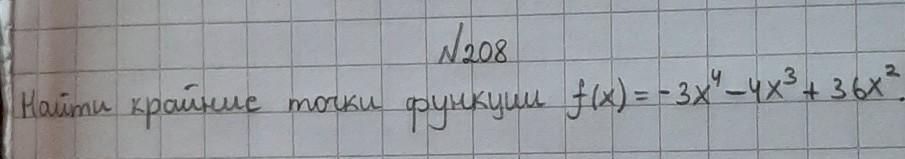 №208
Найти крайние точки функции f(x) = -3x⁴ - 4x³ + 36x².